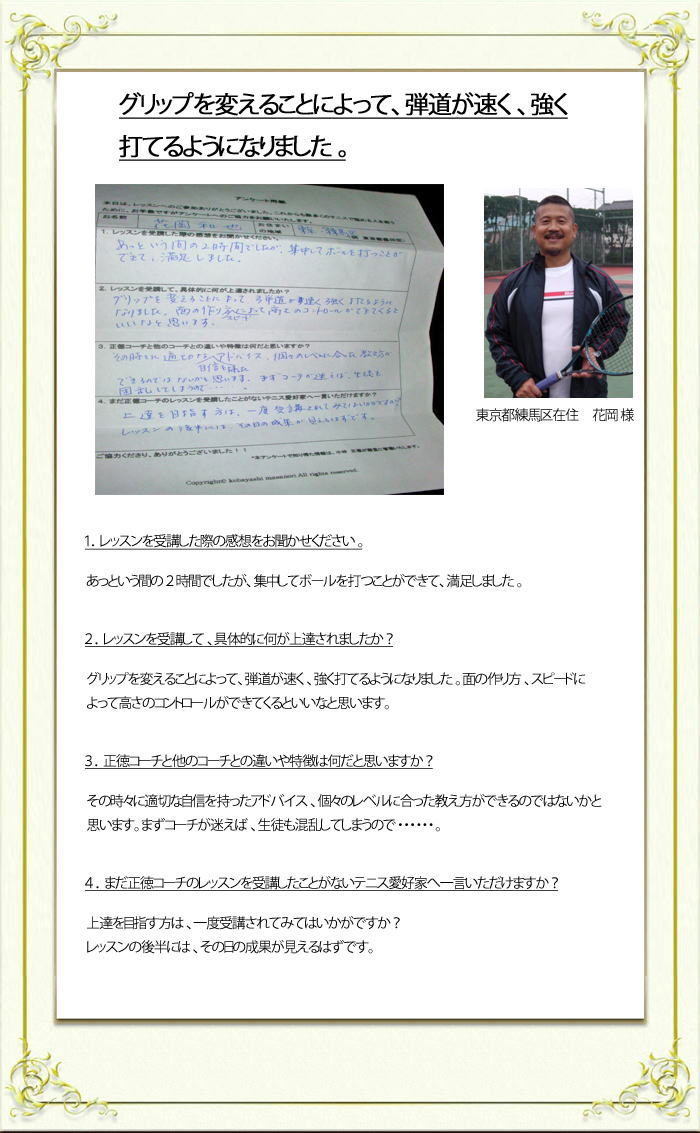 グリップを変えることによって、弾道が速く、強く
打てるようになりました。
アンケート用紙
お名前
お住まい
1. レッスンを受講した際の感想をお聞かせください。
あっという間の2時間でしたが、集中してボールを打つことが
できて、満足しました。
2. レッスンを受講して、具体的に何が上達されましたか？
グリップを変えることによって、弾道が速く強く打てるように
なりました。面の作り方、スピードによって高さのコントロールができてくると
いいなと思います。
3. 正徳コーチと他のコーチとの違いや特徴は何だと思いますか？
その時々に適切な自信を持ったアドバイス、個々のレベルに合った教え方が
できるのではないかと思います。まずコーチが迷えば、生徒も
混乱してしまうので・・・・
4. まだ正徳コーチのレッスンを受講したことがないテニス愛好家へ一言いただけますか？
上達を目指す方は、一度受講されてみてはいかがですか？
レッスンの後半には、その日の成果が見えるはずです。
ご協力くださり、ありがとうございました！！
Copyright© kobayashi masanori All rights reserved.
東京都練馬区在住　花岡 様
1．レッスンを受講した際の感想をお聞かせください。
あっという間の２時間でしたが、集中してボールを打つことができて、満足しました。
２．レッスンを受講して、具体的に何が上達されましたか？
グリップを変えることによって、弾道が速く、強く打てるようになりました。面の作り方、スピードに
よって高さのコントロールができてくるといいなと思います。
３．正徳コーチと他のコーチとの違いや特徴は何だと思いますか？
その時々に適切な自信を持ったアドバイス、個々のレベルに合った教え方ができるのではないかと
思います。まずコーチが迷えば、生徒も混乱してしまうので・・・・・・。
４．まだ正徳コーチのレッスンを受講したことがないテニス愛好家へ一言いただけますか？
上達を目指す方は、一度受講されてみてはいかがですか？
レッスンの後半には、その日の成果が見えるはずです。